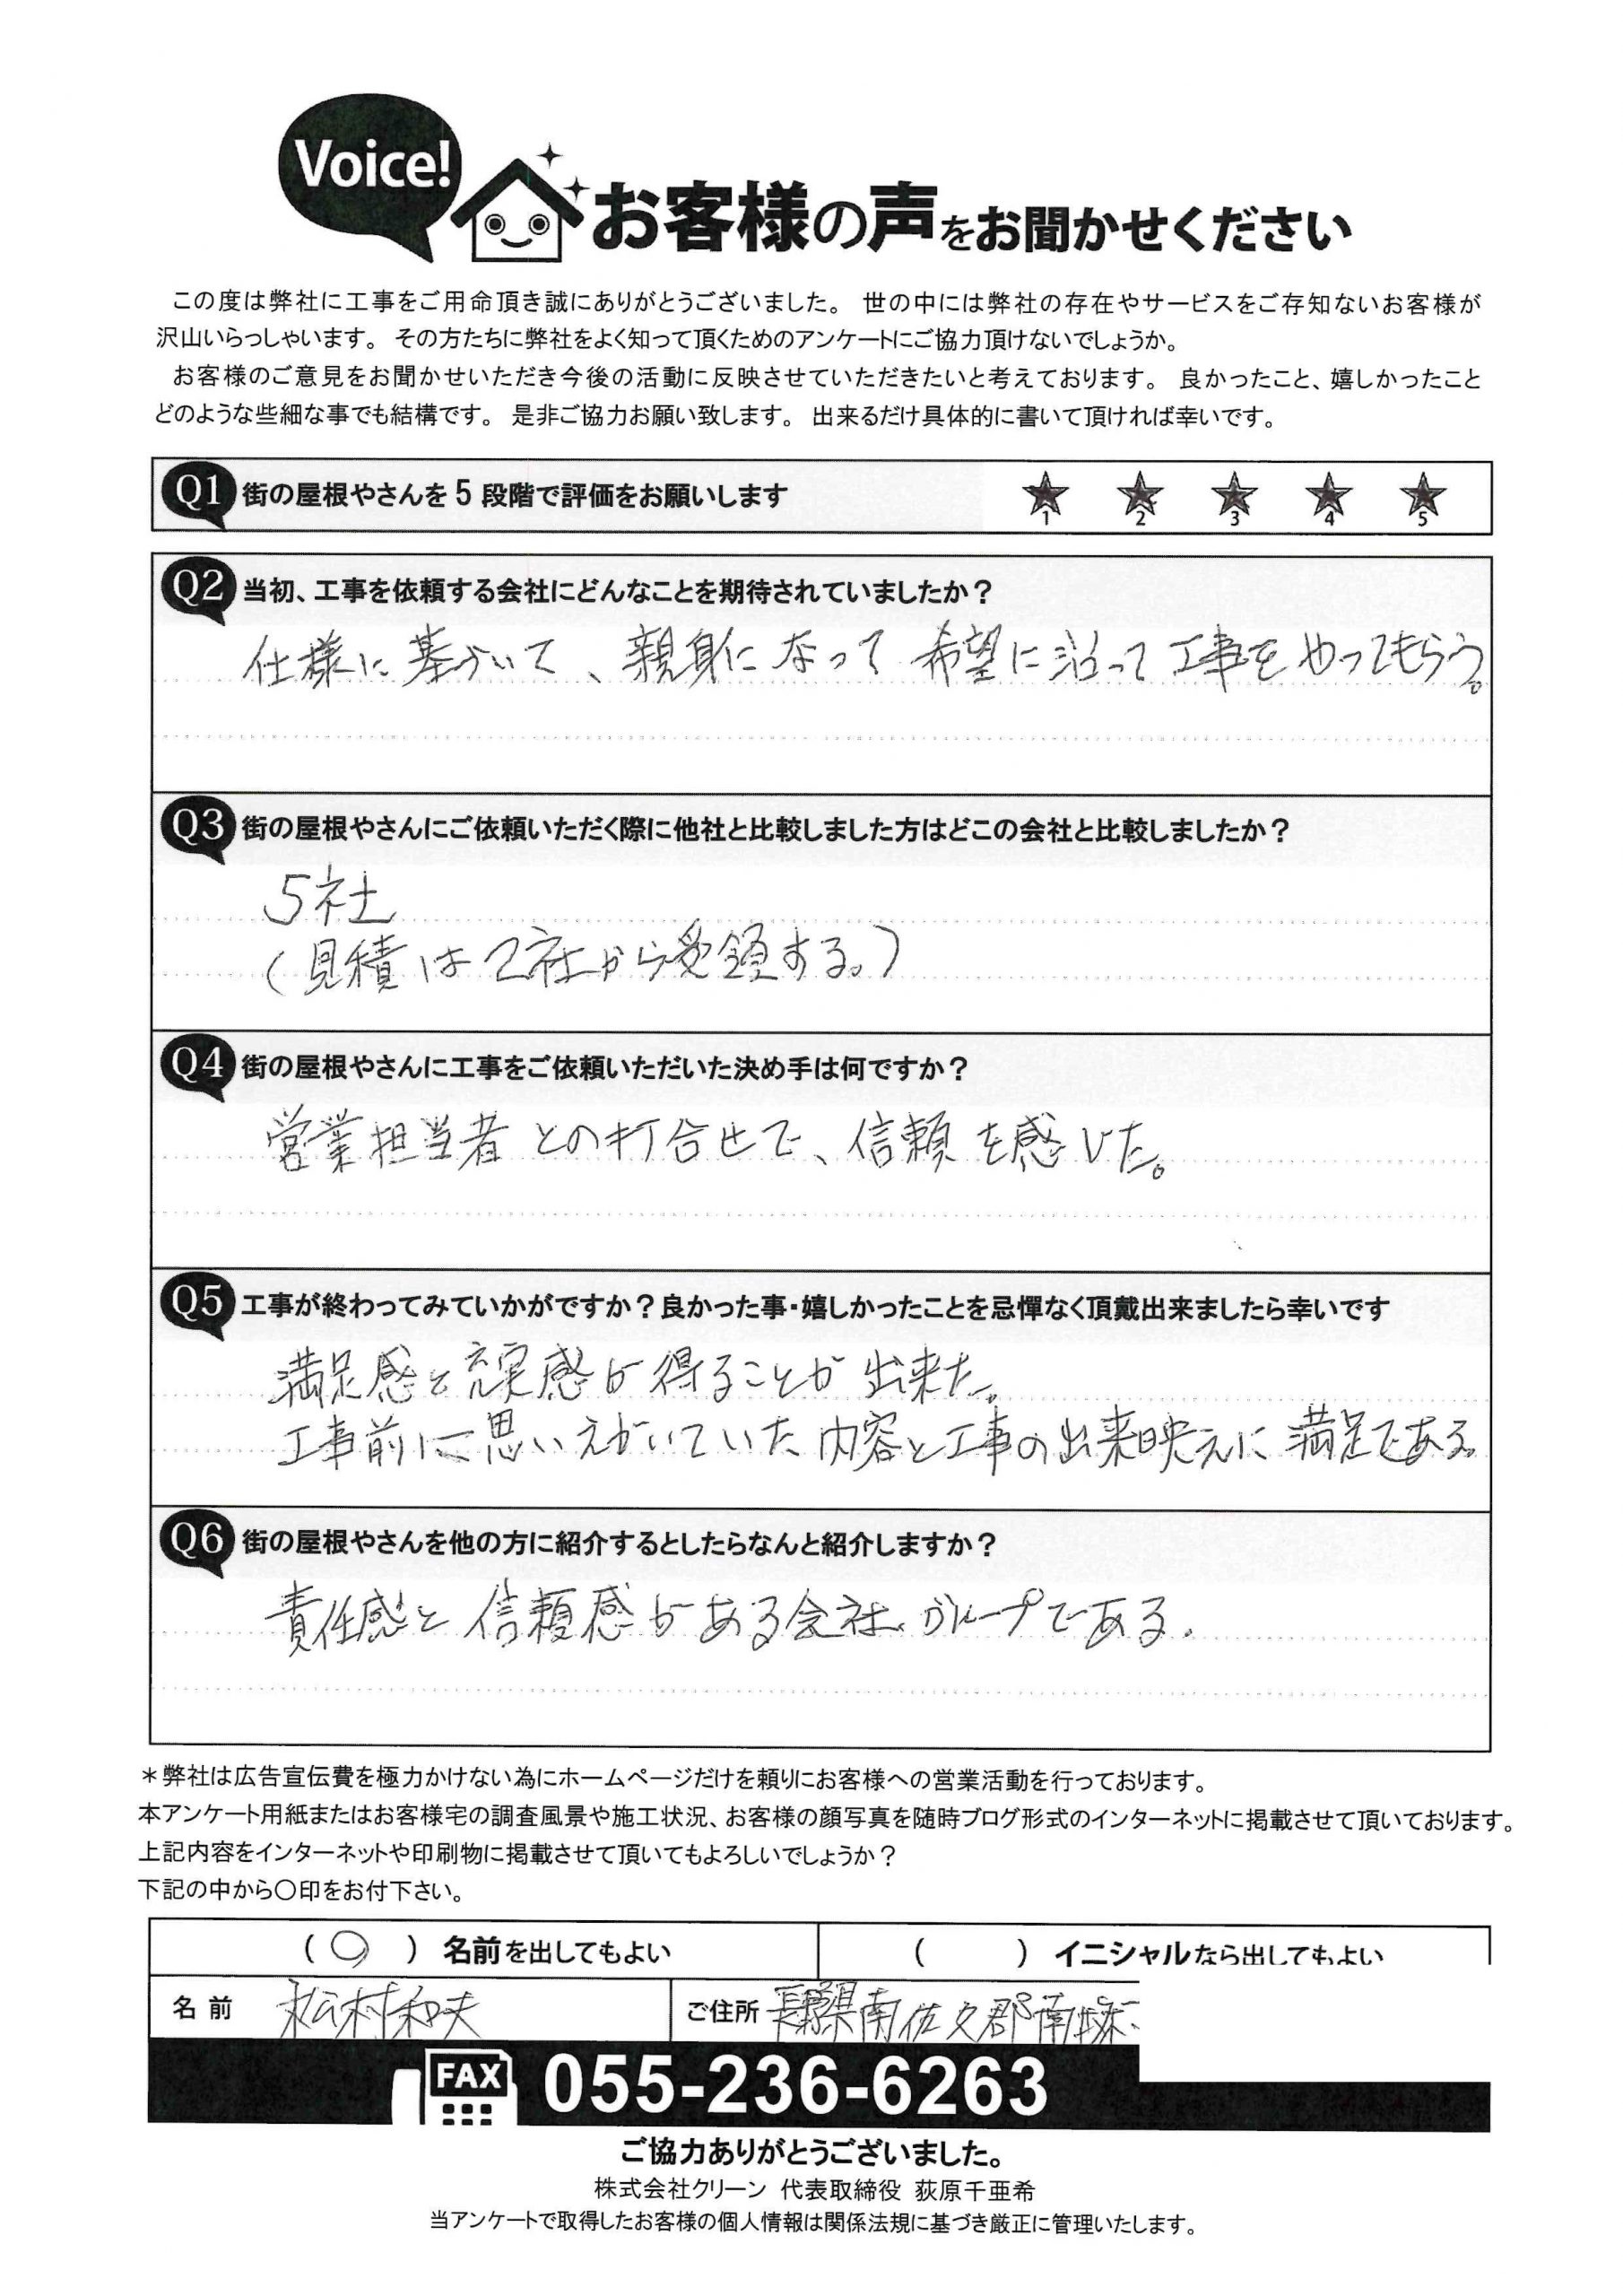 Voice!
お客様の声をお聞かせください
この度は弊社に工事をご用命頂き誠にありがとうございました。 世の中には弊社の存在やサービスをご存知ないお客様が
沢山いらっしゃいます。 その方たちに弊社をよく知って頂くためのアンケートにご協力頂けないでしょうか。
お客様のご意見をお聞かせいただき今後の活動に反映させていただきたいと考えております。 良かったこと、嬉しかったこと
どのような些細な事でも結構です。 是非ご協力お願い致します。 出来るだけ具体的に書いて頂ければ幸いです。
Q1 街の屋根やさんを5段階で評価をお願いします ★1 ★2 ★3 ★4 ★5
Q2 当初、工事を依頼する会社にどんなことを期待されていましたか？
仕様に基づいて、親身になって希望に沿って工事をやってもらう。
Q3 街の屋根やさんにご依頼いただく際に他社と比較しました方はどこの会社と比較しましたか？
5社
(見積は2社から受領する。)
Q4 街の屋根やさんに工事をご依頼いただいた決め手は何ですか？
営業担当者との打合せで、信頼を感じた。
Q5 工事が終わってみていかがですか？良かった事・嬉しかったことを忌憚なく頂戴出来ましたら幸いです
満足感と充実感が得ることが出来た。
工事前に思いえがいていた内容と工事の出来映えに満足である。
Q6 街の屋根やさんを他の方に紹介するとしたらなんと紹介しますか？
責任感と信頼感がある会社、グループである.
＊弊社は広告宣伝費を極力かけない為にホームページだけを頼りにお客様への営業活動を行っております。
本アンケート用紙またはお客様宅の調査風景や施工状況、お客様の顔写真を随時ブログ形式のインターネットに掲載させて頂いております。
上記内容をインターネットや印刷物に掲載させて頂いてもよろしいでしょうか？
下記の中から〇印をお付下さい。
（〇）名前を出してもよい （　）イニシャルなら出してもよい
名前 松村和夫 ご住所 長野県南佐久郡南牧
FAX 055-236-6263
ご協力ありがとうございました。
株式会社クリーン 代表取締役 荻原千亜希
当アンケートで取得したお客様の個人情報は関係法規に基づき厳正に管理いたします。